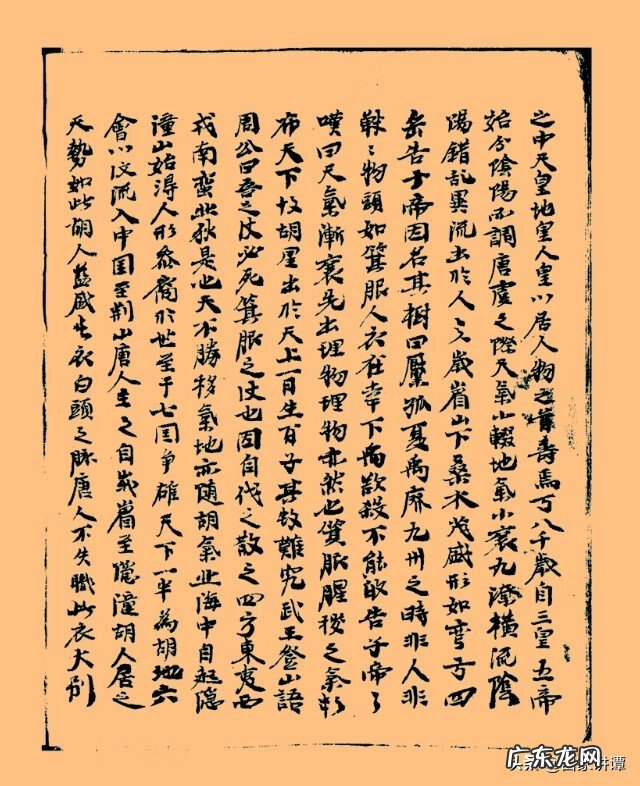 之中天皇地皇人皇以居人物之壽焉万八千歲自三皇五帝
始分陰陽不調唐虞之際天氣小輟地氣小衰九潦橫流陰
陽錯乱異流出於人之歲眉山下桑木茂盛形如弯弓四
岳告于帝因名其樹曰壓弧夏禹麻九州之時非人非
獸之物頭如箕服人衣在幸下禹欲殺不能敢告于帝了
嘆曰天氣漸衰先出理物理物亦然也箕服腥穢之氣
布天下故胡星出於天上一月生百子其故難究武王登山語
周公曰吾之後必死箕服之後也因自伐之散之四方東夷西
戎南蠻北狄是也天不勝移氣地亦随胡氣业海中自起隐
潼山始得人形於世至于七国争雄天下一半為胡地六
會以後流入中国至荆山唐人主之自峩眉至隐潼胡人居之
天勢如此胡人益盛生衣白頭之脉唐人不失職此衣大別
广东龙网